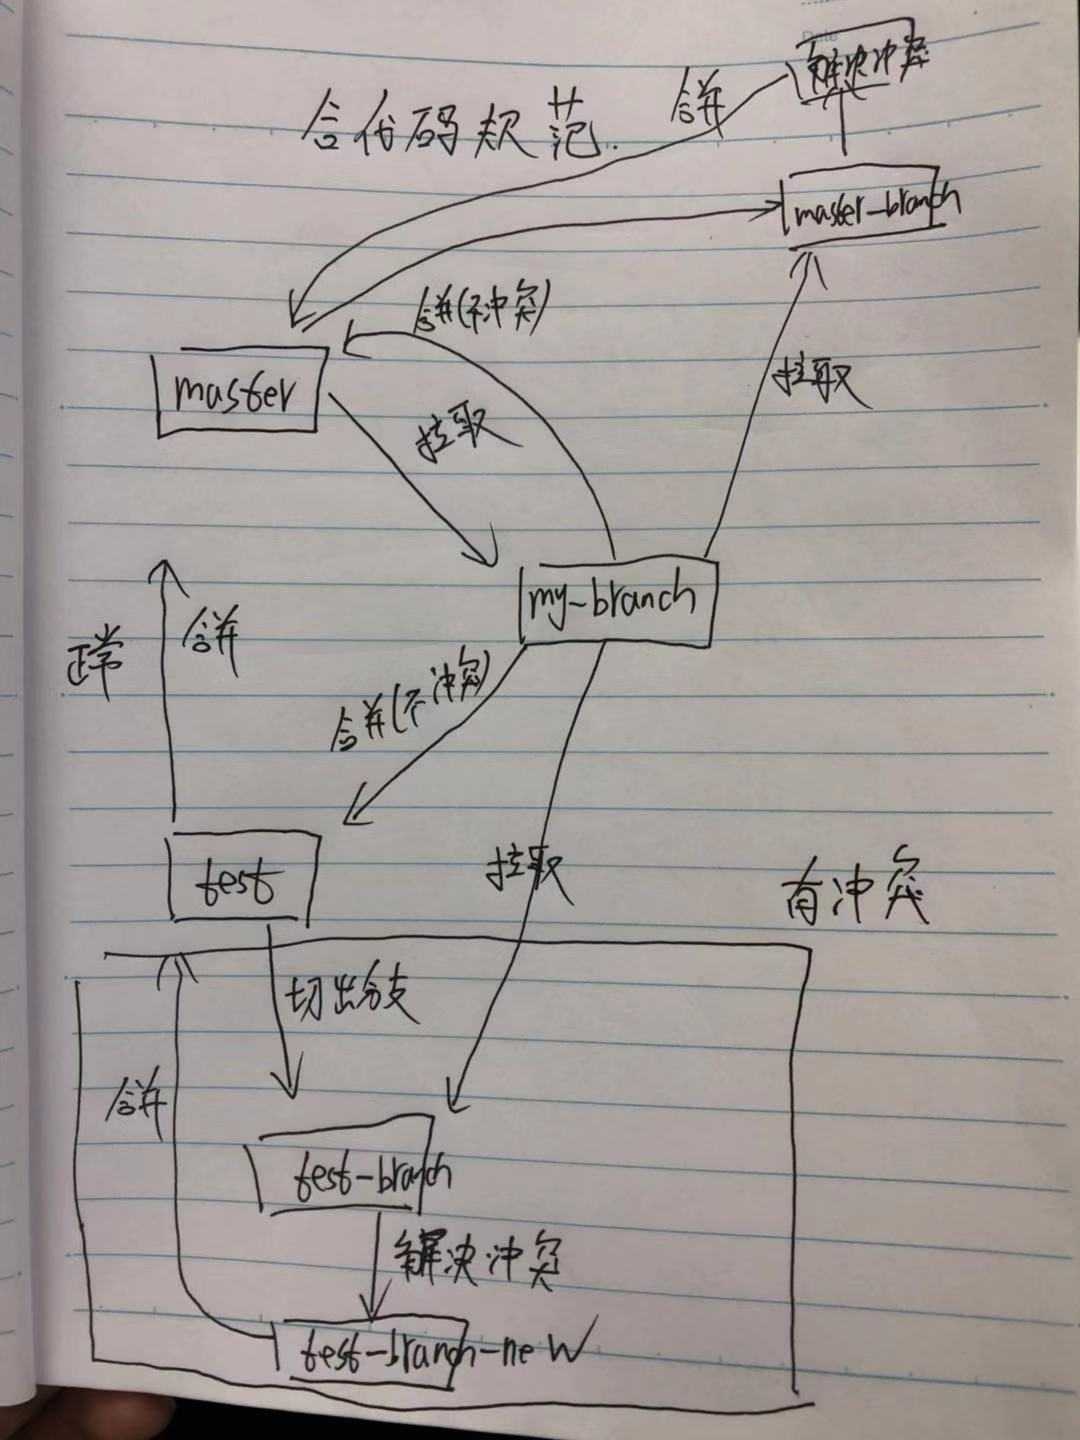 Date
解决冲突
合并
合代码规范.
master-branch
合并(不冲突)
拉取
master
拉取
my-branch
正常
合并
合并(不冲突)
拉取
test
有冲突
切出分支
合并
test-branch
解决冲突
test-branch-new